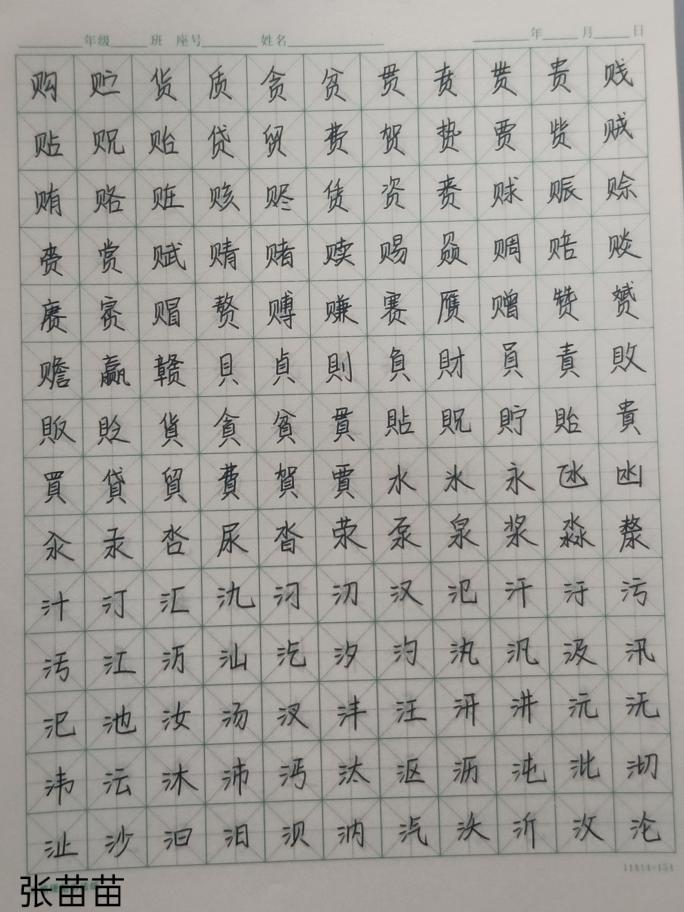 年级 班 座号 姓名 年 月 日
购 贮 货 质 贪 贫 贯 贲 贳 贵 贱
贴 贶 贻 贷 贸 费 贺 贽 贾 赀 贼
贿 赂 赃 赅 赆 赁 资 赉 赇 赈 赊
赍 赏 赋 赌 赎 赐 赒 赔 赕
赓 赉 赗 赘 赙 赚 赛 赝 赠 赞 赟
赡 赢 赣 貝 貞 則 負 財 員 責 敗
販 貶 貨 貪 貧 貫 貼 貺 貯 貽 貴
買 貸 貿 費 賀 賈 水 氷 永 氹 凼
汆 汞 沓 尿 沓 荥 泵 泉 浆 淼 漦
汁 汀 汇 氿 汈 汉 氾 汗 汙 污
汚 江 沥 汕 汔 汐 汋 汍 汎 汲 汛
汜 池 汝 汤 汊 沣 汪 汧 汫 沅 沅
沩 沄 沐 沛 沔 汰 沤 沥 沌 沘 沏
沚 沙 汩 汨 沏 汭 汽 沃 沂 汶 沦
张苗苗